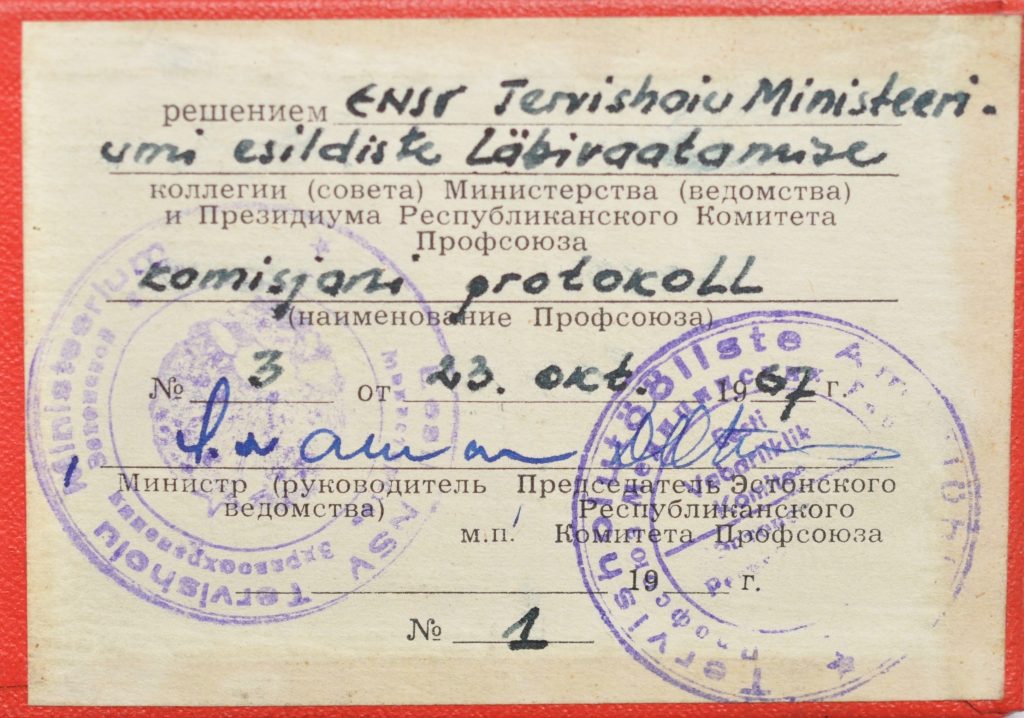 решением ENSV Tervishoiu Ministeeri-
umi esildiste Läbivaatamise
коллегии (совета) Министерства (ведомства)
и Президиума Республиканского Комитета
Профсоюза
komisjoni protokoll
(наименование Профсоюза)
№ 3 от 23. okt. 1967 г.
Министр (руководитель Председатель Эстонского
ведомства) Республиканского
м.п. Комитета Профсоюза
19 г.
№ 1
Tervishoiu Ministeerium
Здравоохранения
Эстонской
NSV
Tervishoiutööliste Am
Eesti
Vabariiklik
Komitee